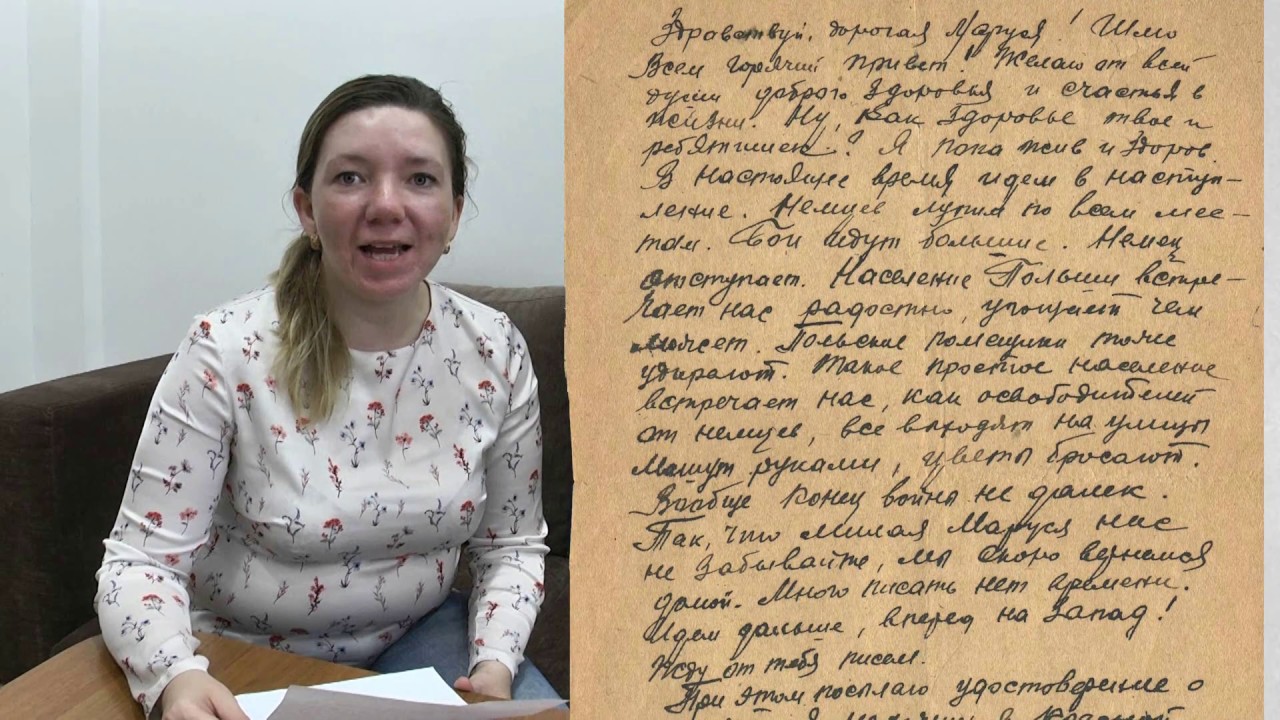 Здравствуй, дорогая Маруся! Шлю
Всем горячий привет! Желаю от всей
души доброго здоровья и счастья в
жизни. Ну, как здоровье твое и
ребятишек? Я пока жив и здоров.
В настоящее время идем в наступ-
ление. Немцев лупим по всем мес-
там. Бои идут большие. Немец
отступает. Население Польши встре-
чает нас радостно, угощает чем
может. Польские помещики тоже
удирают. Такое простое население
встречает нас, как освободителей
от немцев, все выходят на улицы
Машут руками, цветы бросают.
Вообще конец война не далек.
Так, что милая Маруся нас
не забывайте, мы скоро вернемся
домой. Много писать нет времени.
Идем дальше, вперед на Запад!
Жду от тебя писем.
При этом посылаю удостоверение о